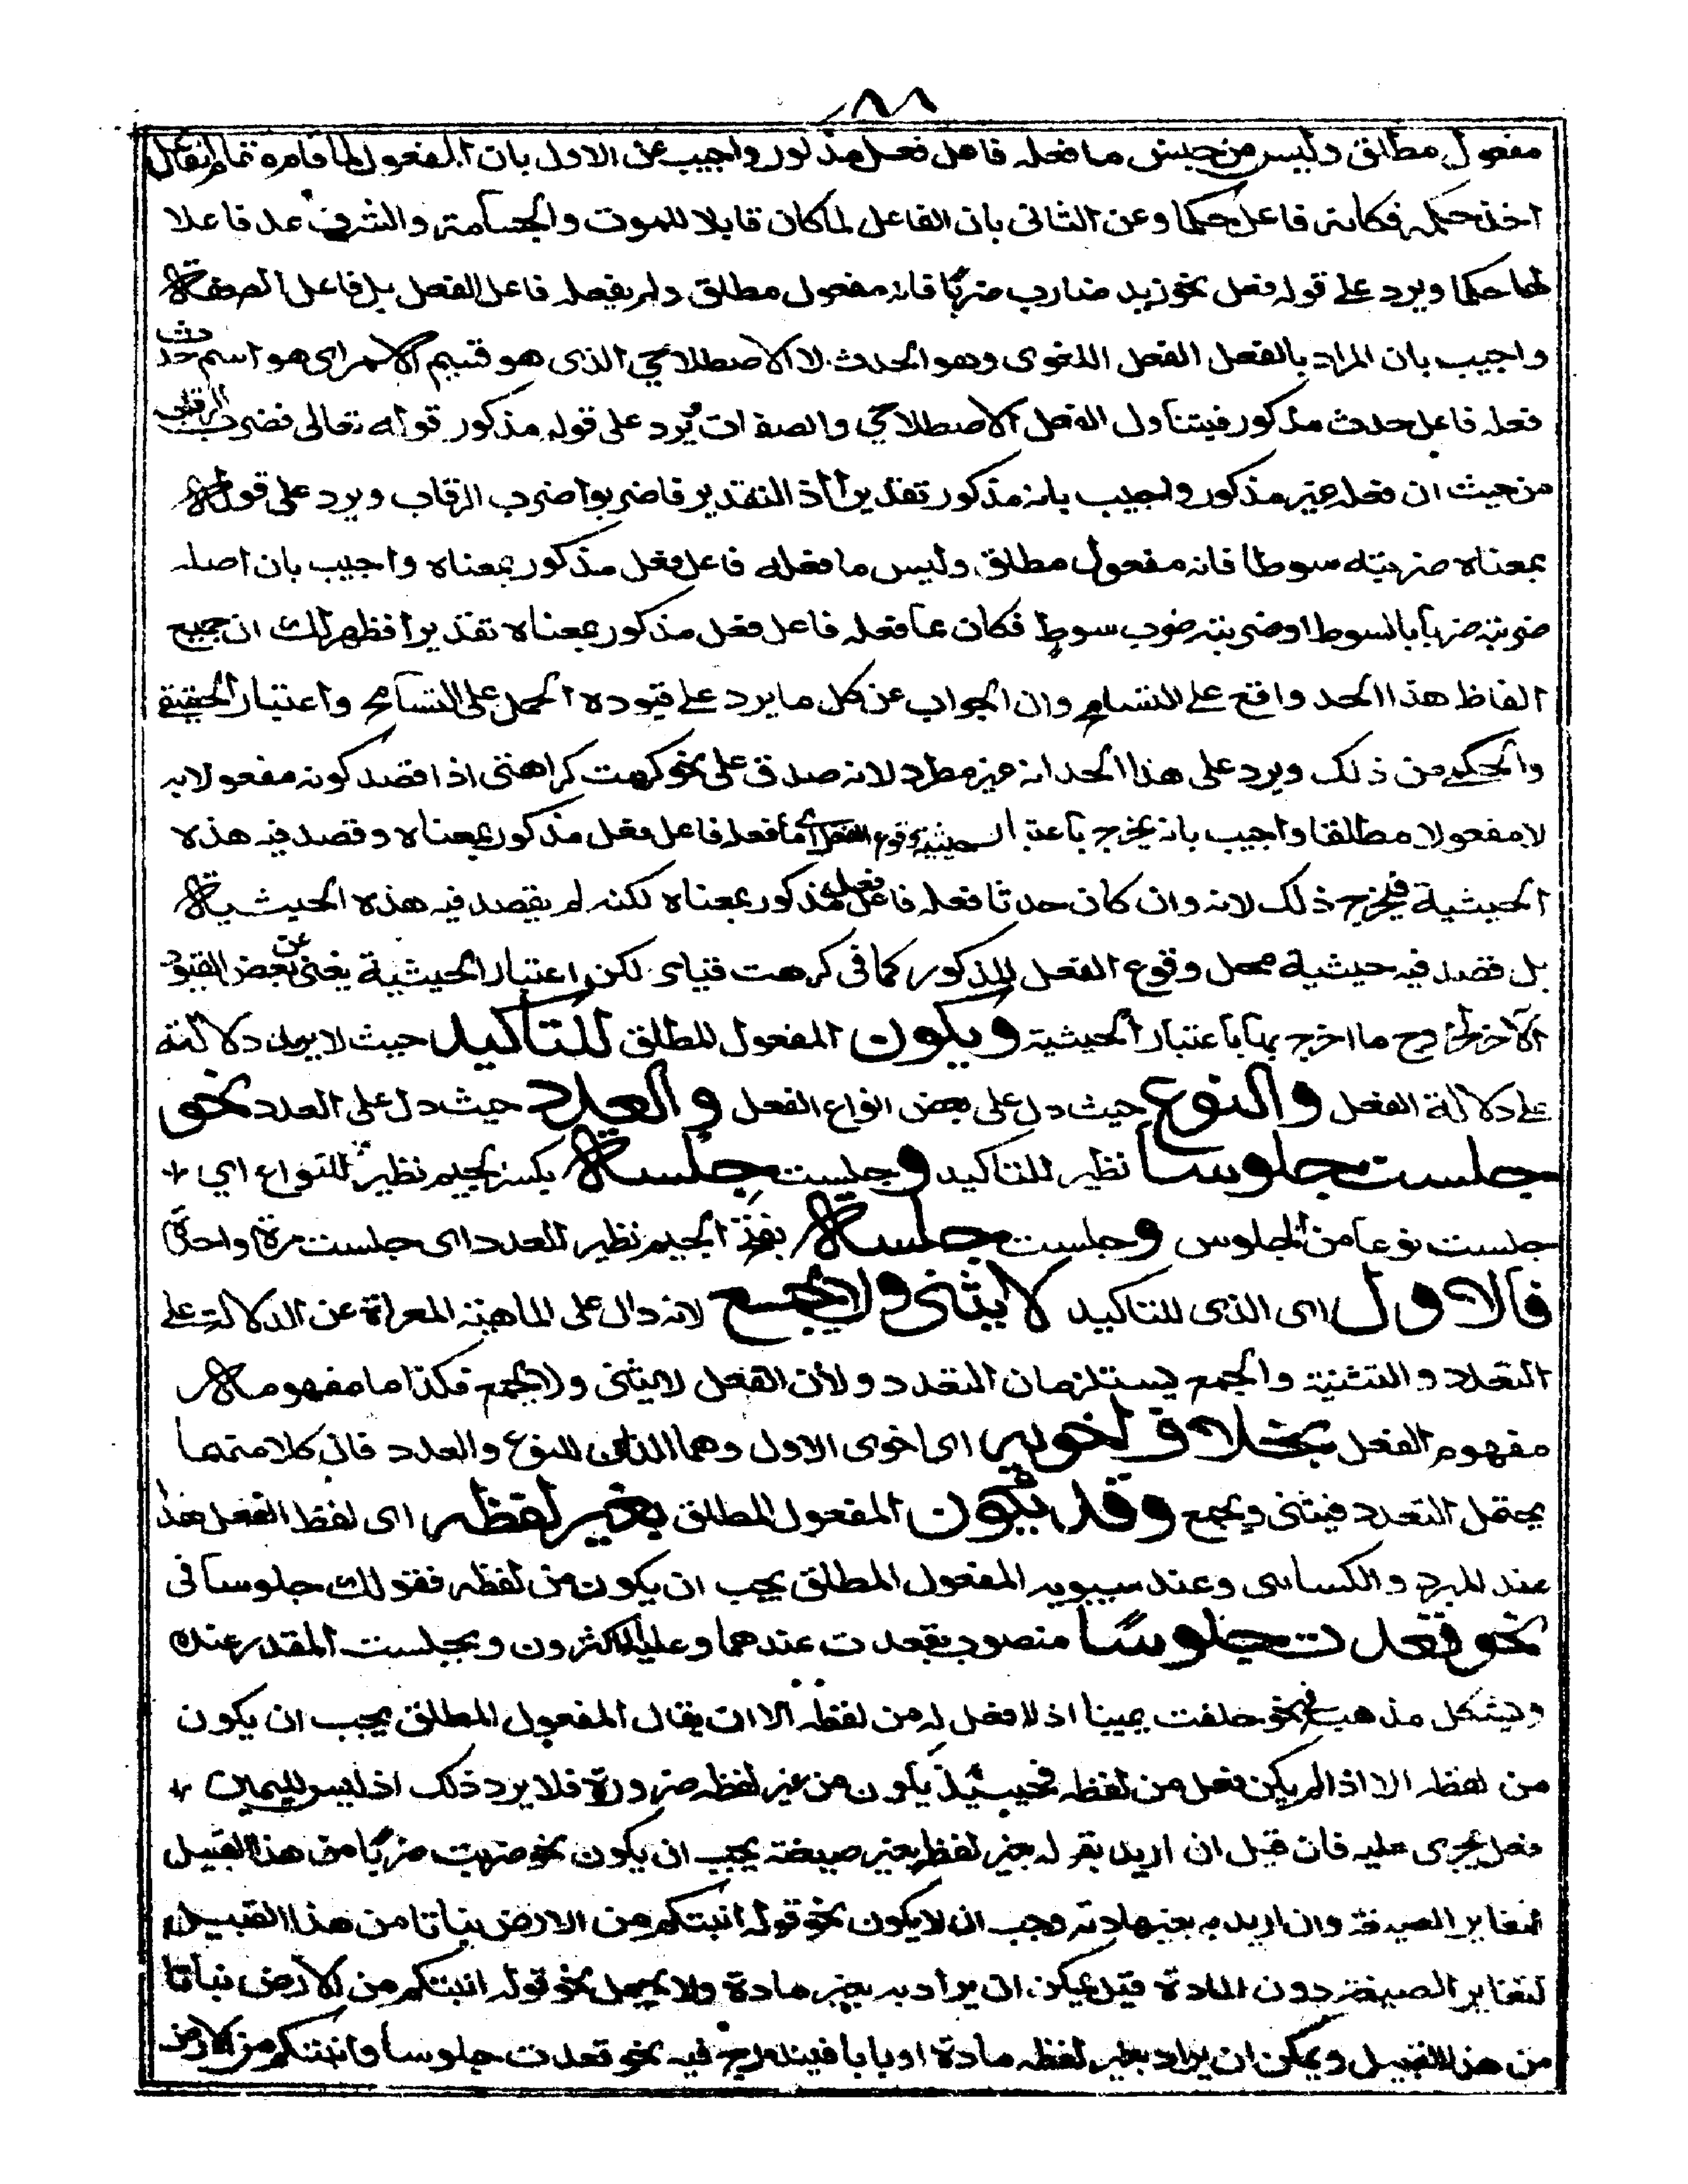 ٨٨
مفعول مطلق وليس من جنس ما فعله فاعل فعل مذكور واجيب عن الاول بان المفعول لما قام مقام الفاعل
اخذ حكمه فكانه فاعل حكما وعن الثانى بان الفاعل لما كان قابلا للموت والجسامة والشرف عد فاعلا
لها حكما ويرد على قوله فعل نحو زيد ضارب ضربًا فانه مفعول مطلق ولم يفعله فاعل الفعل بل فاعل الصفة
واجيب بان المراد بالفعل الفعل اللغوى وهو الحدث لا الاصطلاحي الذى هو قسيم الاسم اى هو اسم حدث
فعله فاعل حدث مذكور فيتناول الفعل الاصطلاحي والصفات يرد على قوله مذكور قوله تعالى فضرب الرقاب
من حيث ان فعله غير مذكور واجيب بانه مذكور تقديرا اذ التقدير فاضربوا ضرب الرقاب ويرد على قوله
بمعناه ضربته سوطا فانه مفعول مطلق وليس ما فعله فاعل فعل مذكور بمعناه واجيب بان اصله
ضربته ضربا بالسوط او ضربته ضرب سوط فكان مما فعله فاعل فعل مذكور بمعناه تقديرا فظهر لك ان جميع
الفاظ هذا الحد واقع على التسامح وان الجواب عن كل ما يرد على قيوده الحمل على التسامح واعتبار الحقيقي
والحكمي من ذلك ويرد على هذا الحد انه غير مطرد لانه صدق على نحو كرهت كراهتى اذا قصد كونه مفعولا به
لا مفعولا مطلقا واجيب بانه يخرج باعتبار حيثية وقوع الفعل اى ما فعله فاعل فعل مذكور بمعناه وقصد فيه هذه
الحيثية فيخرج ذلك لانه وان كان حدثا فعله فاعل فعل مذكور بمعناه لكنه لم يقصد فيه هذه الحيثية
بل قصد فيه حيثية محل وقوع الفعل المذكور كما فى كرهت قيامى لكن اعتبار الحيثية يغنى عن بعض القيود
الآخر لخروج ما اخرج بها باعتبار الحيثية ويكون المفعول المطلق للتاكيد حيث لا يزيد دلالته
على دلالة الفعل والنوع حيث دل على بعض انواع الفعل والعدد حيث دل على العدد نحو
جلست جلوسا نظير للتاكيد وجلست جلسة بكسر الجيم نظير للنوع اى
جلست نوعا من الجلوس وجلست جلسة بفتح الجيم نظير للعدد اى جلست مرة واحدة
فالاول اى الذى للتاكيد لا يثنى ولا يجمع لانه دال على الماهية المعراة عن الدلالة على
التعدد والتثنية والجمع يستلزمان التعدد ولان الفعل لا يثنى ولا يجمع فكذا ما مفهومه
مفهوم الفعل بخلاف اخويه اى اخوى الاول وهما اللذان للنوع والعدد فان كلا منهما
يحتمل التعدد فيثنى ويجمع وقد يكون المفعول المطلق بغير لفظه اى لفظ الفعل هذا
عند المبرد والكسائى وعند سيبويه المفعول المطلق يجب ان يكون من لفظه فقولك جلوسا فى
نحو قعدت جلوسًا منصوب بقعدت عندهما وعليه الاكثرون وبجلست المقدر عنده
ويشكل مذهبه فى نحو حلفت يمينا اذ لا فعل له من لفظه الا ان يقال المفعول المطلق يجب ان يكون
من لفظه الا اذا لم يكن فعل من لفظه فحينئذ يكون من غير لفظه ضرورة فلا يرد ذلك اذ ليس لليمين
فعل يجرى عليه فان قيل ان اريد بقوله بغير لفظه بغير صيغته يجب ان يكون نحو ضربت ضربًا من هذا القبيل
لتغاير الصيغة وان اريد به بغير مادته وجب ان لا يكون نحو قوله انبتكم من الارض نباتا من هذا القبيل
لتغاير الصيغة دون المادة قيل يمكن ان يراد به بغير مادة ولا يجعل نحو قوله انبتكم من الارض نباتا
من هذا القبيل ويمكن ان يراد بغير لفظه مادة او بابا فيندرج فيه نحو قعدت جلوسا وانبتكم من الارض